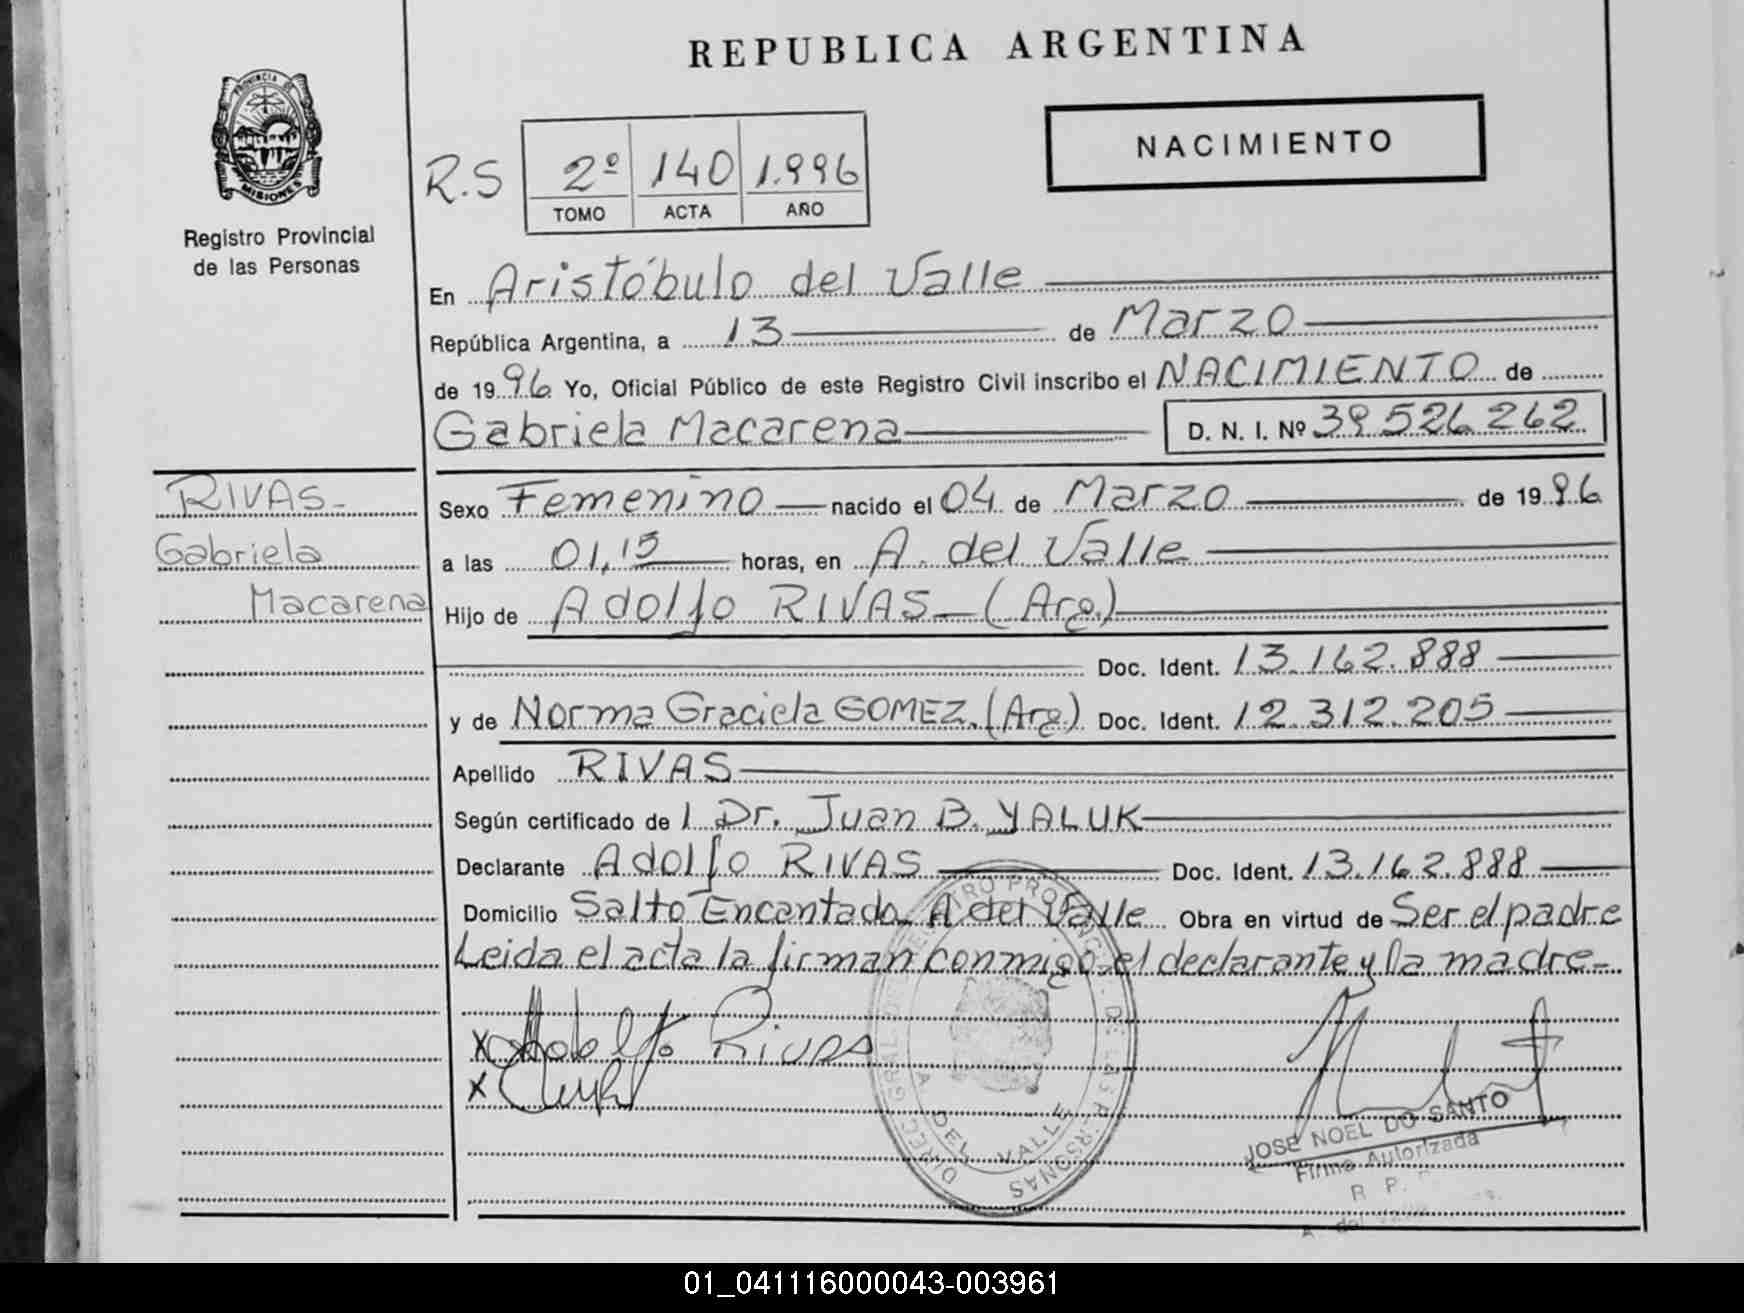 REPUBLICA ARGENTINA
PROVINCIA DE MISIONES
Registro Provincial
de las Personas
NACIMIENTO
R.S 2º 140 1.996
TOMO ACTA AÑO
En Aristóbulo del Valle
República Argentina, a 13 de Marzo
de 1996 Yo, Oficial Público de este Registro Civil inscribo el NACIMIENTO de
Gabriela Macarena D. N. I. Nº 39.526.262
RIVAS-
Gabriela
Macarena
Sexo Femenino nacido el 04 de Marzo de 1996
a las 01,15 horas, en A. del Valle
Hijo de Adolfo RIVAS-(Arg.)
Doc. Ident. 13.162.888
y de Norma Graciela GOMEZ.(Arg.) Doc. Ident. 12.312.205
Apellido RIVAS
Según certificado de l Dr. Juan B. YALUK
Declarante Adolfo RIVAS Doc. Ident. 13.162.888
Domicilio Salto Encantado A del Valle Obra en virtud de Ser el padre
Leida el acta la firman conmigo el declarante y la madre-
x Adolfo Rivas
x
DIREC. GRAL. DE REGISTRO PROVINC. DE LAS PERSONAS
A. DEL VALLE
JOSE NOEL DO SANTO
Firma Autorizada
R. P.
A. del Valle
01_041116000043-003961